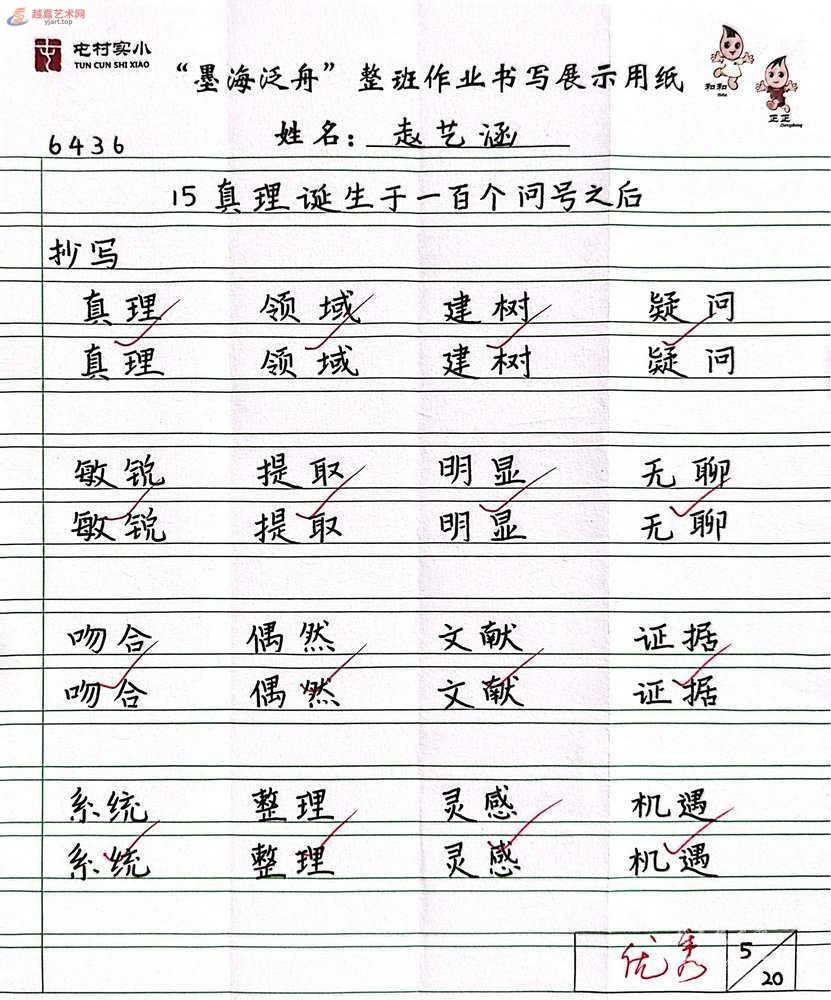 越嘉艺术网
yjart.top
屯村实小
TUN CUN SHI XIAO
“墨海泛舟”整班作业书写展示用纸
和和
正正
6436
姓名：赵艺涵
15 真理诞生于一百个问号之后
抄写
真理 领域 建树 疑问
真理 领域 建树 疑问
敏锐 提取 明显 无聊
敏锐 提取 明显 无聊
吻合 偶然 文献 证据
吻合 偶然 文献 证据
系统 整理 灵感 机遇
系统 整理 灵感 机遇
优秀 5/20